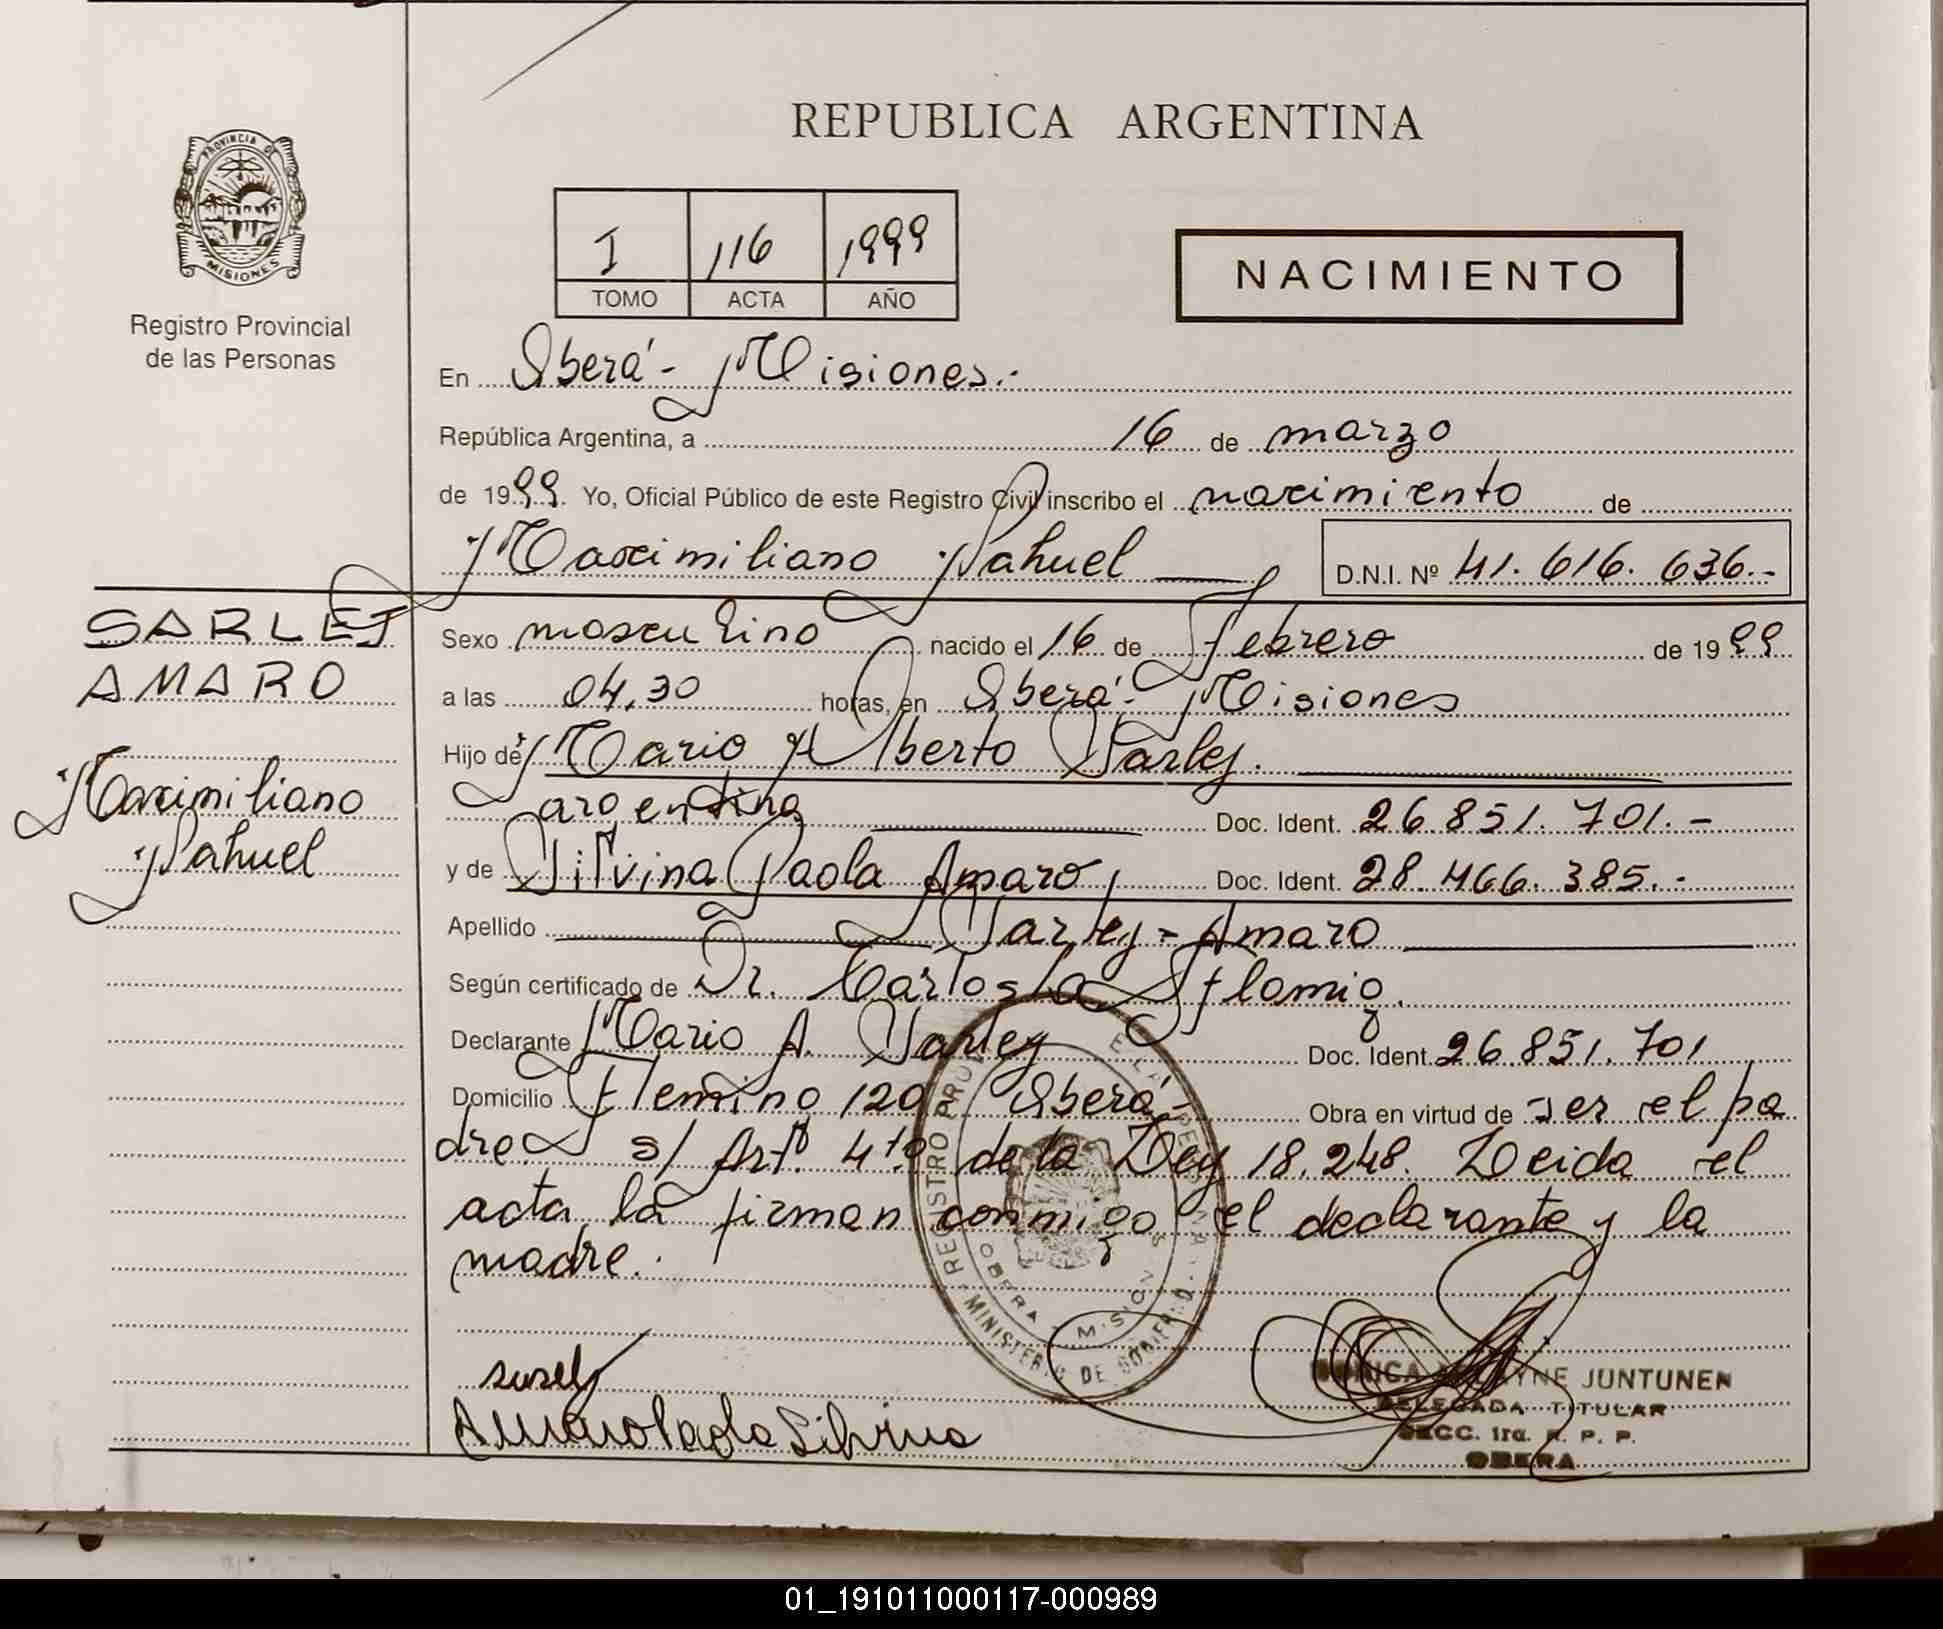 REPUBLICA ARGENTINA
PROVINCIA DE
MISIONES
Registro Provincial
de las Personas
I 116 1999
TOMO ACTA AÑO
NACIMIENTO
En Oberá - Misiones.-
República Argentina, a 16 de marzo
de 1999. Yo, Oficial Público de este Registro Civil inscribo el nacimiento de
Maximiliano Nahuel
D.N.I. Nº 41.616.636.-
SARLEJ
AMARO
Maximiliano
Nahuel
Sexo masculino nacido el 16 de Febrero de 1999
a las 04,30 horas, en Oberá - Misiones
Hijo de Mario Alberto Sarlej.
argentina Doc. Ident. 26.851.701.-
y de Silvina Paola Amaro, Doc. Ident. 28.466.385.-
Apellido Sarlej - Amaro
Según certificado de Dr. Carlos
Declarante Mario A. Sarlej Doc. Ident. 26.851.701
Domicilio Fleming 120 Oberá - Obra en virtud de ser el pa
dre. s/ Art. 4to. de la Ley 18.248. Leida el
acta, la firman conmigo el declarante y la
madre.
REGISTRO PROV DE LAS PERSONAS
OBERA - MISIONES
MINISTERIO DE GOBIERNO
Amaro Paola Silvina
JUNTUNEN
DELEGADA TITULAR
SECC. 1ra. R. P. P.
OBERA
01_191011000117-000989